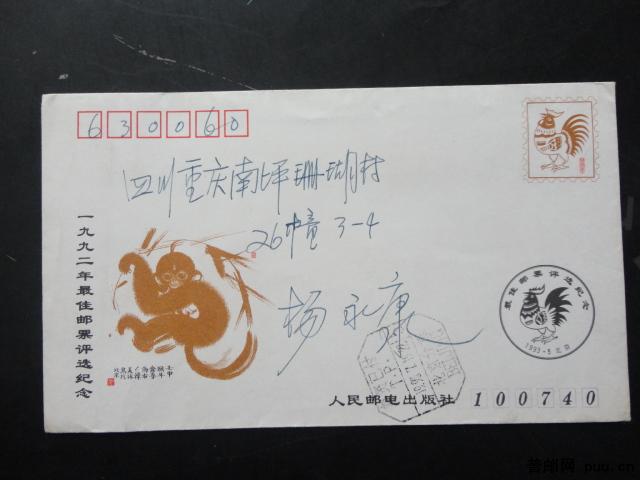 630060
四川重庆南坪珊瑚村
26幢 3-4
杨永康
一九九二年最佳邮票评选纪念
最佳邮票评选纪念
1993·5 北京
人民邮电出版社
100740
普邮网 puu.cn